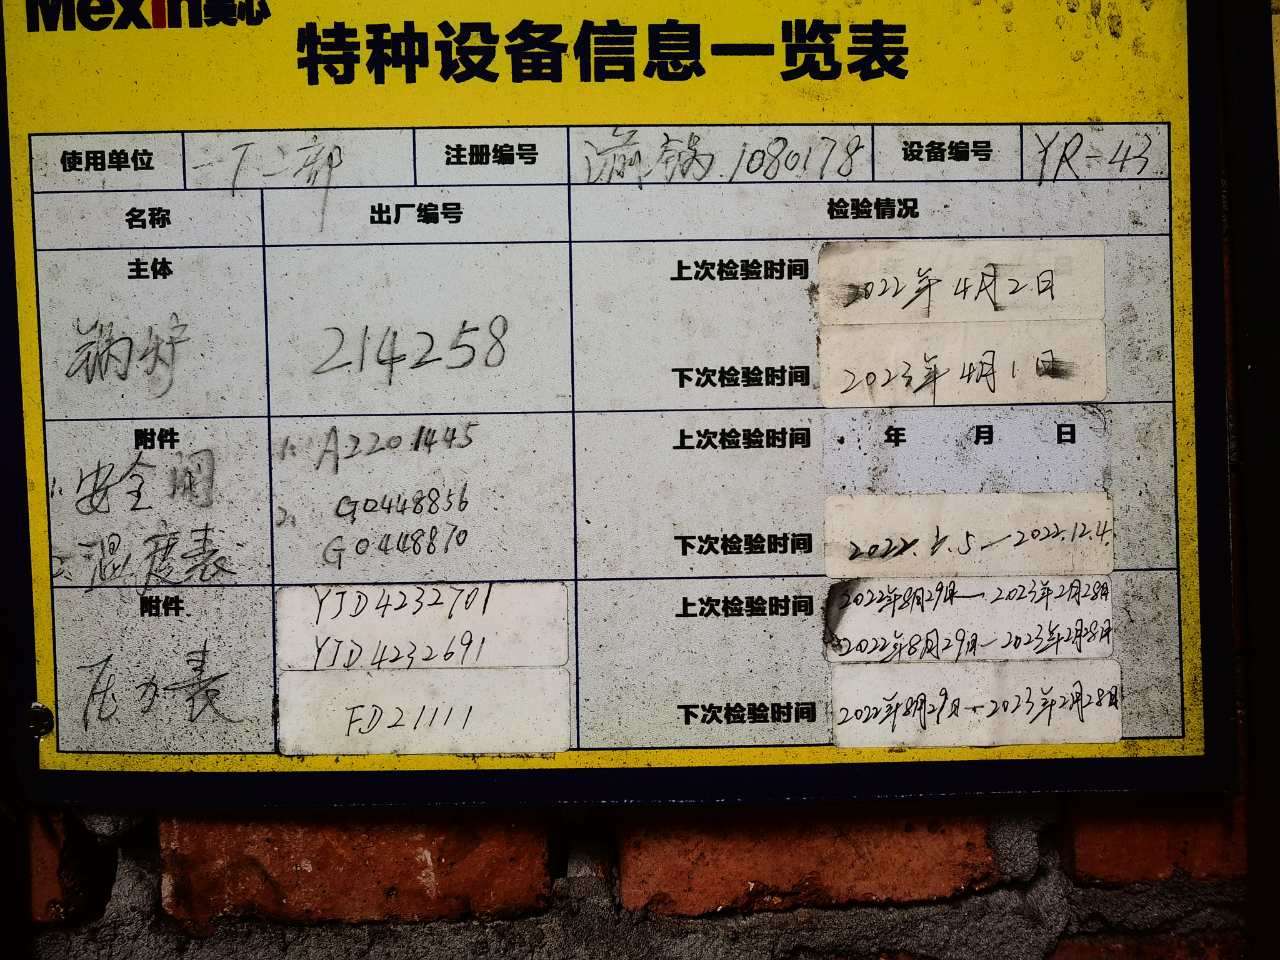 Mexin美心
特种设备信息一览表
使用单位 一丁二部 注册编号 锅 1080178 设备编号 YR-43
名称 出厂编号 检验情况
主体 上次检验时间 2022年4月2日
锅炉 214258
下次检验时间 2023年4月1日
附件 1. A2201445 上次检验时间 年 月 日
1. 安全阀
2. G0448856
2. 温度表 G0448870 下次检验时间 5—2022.12.4
附件 YJD4232701 上次检验时间 2022年8月29日—2023年2月28日
YJD4232691 2022年8月29日—2023年2月28日
压力表 FD21111 下次检验时间 2022年8月29日—2023年2月28日